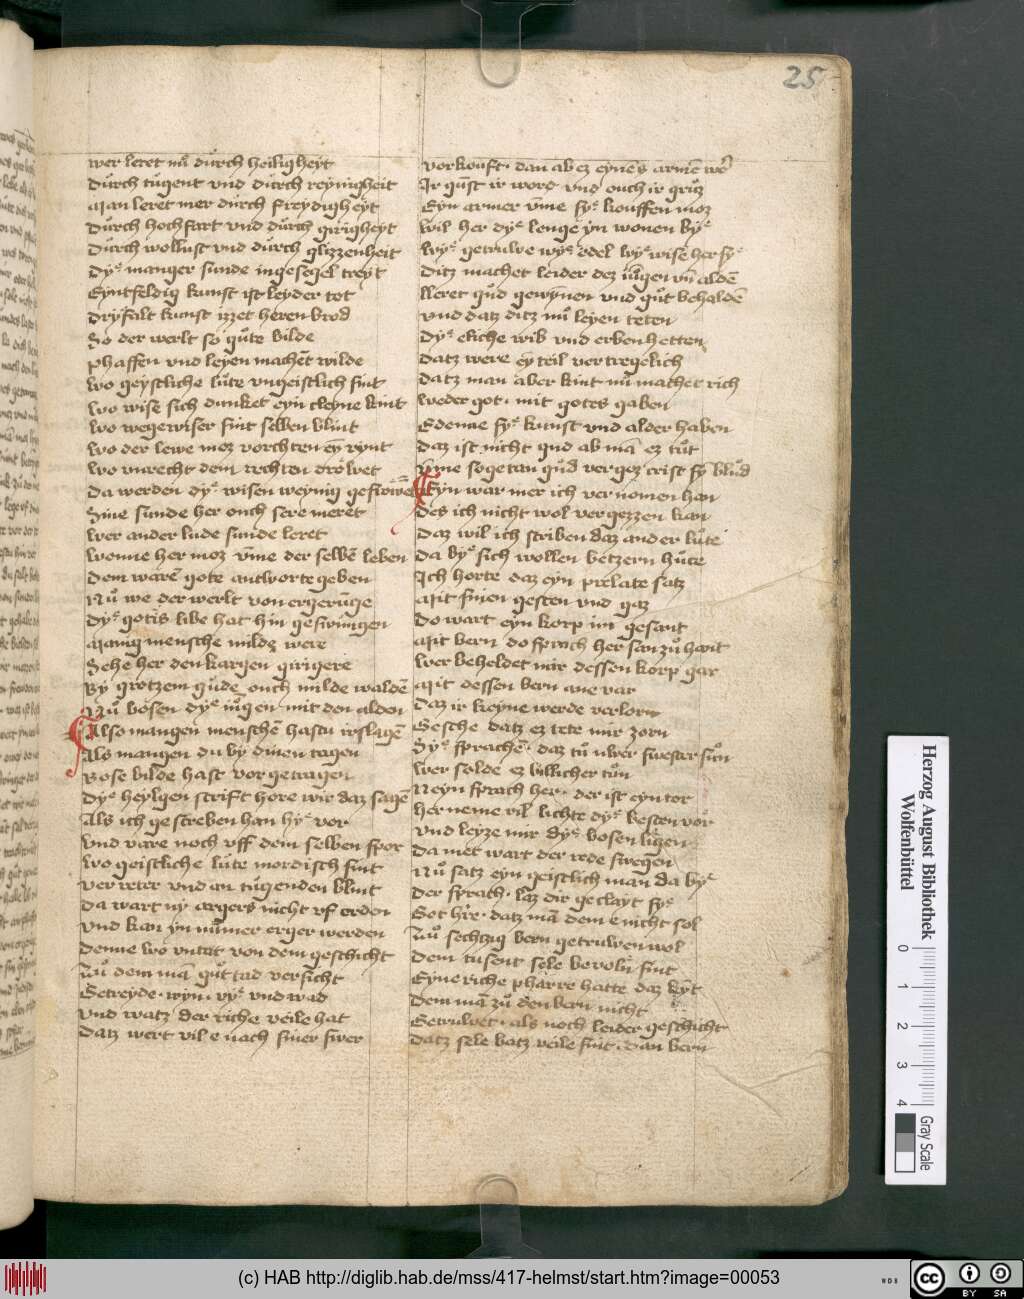 25
wer leret nu̍ durch heiligheyt
Durch tu̍gent vnd durch reynigheit
Man leret mer durch freydigheyt
Durch hochfart vnd durch girigheyt
Durch wollust vnd durch glizzenheit
Dye manger sunde ingesegel treyt
Eyntfeldig kunst ist leyder tot
Dryfalt kunst izzet heren brod
So der werlt so gu̍te bilde
phaffen vnd leyen machēt wilde
wo geystliche lu̍te vngeistlich sint
wo wise sich dunket eyn cleyne kint
wo wegewiser sint selben blint
wo der lewe moz vorchten ey rynt
wo vnrecht dem rechten drowet
Da werden dye wisen weynig
Sine sunde her ouch sere meret
wer ander lude sunde leret
wenne her moz vm̄e der selbē leben
Dem warē gote antworte geben
Nu̍ we der werlt von ergerunge
Dye gotis libe hat hin geswungen
Manig mensche milde were
Sehe her den kargen girigere
By grotzem gude ouch milde waldē
Nu̍ bosen dye iu̍gen mit den alden
Also mangen menschē hastu irslagē
Als mangen du by dinen tagen
Bose bilde hast vorgetragen
Dye heylgen scrift hore wir daz sagē
Als ich gescreben han hye vor
Vnd vare noch vff dem selben spor
wo geistliche lu̍te mordisch sint
Verreter vnd an tu̍genden blint
Da wart ny argers nicht vf erden
Vnd kan yn nu̍mer erger werden
Denne wo vntat von dem geschicht
Zu̍ dem mā gu̍t tad versicht
Getreyde. wyn. vye vnd wad
Vnd watz der riche veile hat
Datz wert vil e nach siner swer
vorkouft. dan ab ez eynes armē wer
Ir gunst ir word vnd ouch ir gruz
Eyn armer vm̄e sye kouffen moz
wil her dye lenge yn wonen bye
wye getruwe wye edel wye wise her sy
Ditz machet leider dez iu̍gen vn̄ aldē
lleret gu̍d gewynnen vnd gu̍t behaldē
Vnd datz ditz nu̍ leyen teten
Dye eliche wib vnd erben hetten
Datz were ey teil vertregelich
Datz man aber kint nu̍ machet rich
weder got. mit gotes gaben
Edenne sye kunst vnd alder haben
Daz ist nicht gud ab mā ez tu̍t
Vm̄e sogetan gu̍d vergoz crist sy blu̍d
Eyn war mer ich vernomen han
Des ich nicht wol vergezzen kan
Daz wil ich scriben daz ander lu̍te
Da bye sich wollen betzern hu̍te
Ich horte daz eyn prelate satz
Mit sinen gesten vnd gaz
Do wart eyn korp im gesant
Mit bern do sprach her san zu̍ hant
wer beheldet mir dessen korp gar
Mit dessen bern ane var
Daz ir keyne werde verlorn
Gesche datz ez tete mir zorn
Sye sprachē. daz tu̍ uwer swester su̍n
wer solde ez billicher tun
Neyn sprach her. der ist eyn tor
her neme vil lichte dye besten vor
Vnd leyze mir dye bosen ligen
Da met wart der rede swegen
Nu̍ satz eyn geistlich man da bye
Der sprach. laz dir geclayt sye
Got h're. datz mā dem e nicht sol
Zu̍ sechtzig bern getruwen wol
Dem tusent sele bevoln sint
Eyne riche pharre hatte daz kynt
Dem mā zu̍ den bern nicht
Getruwet. als noch leider geschicht
Datz sele batz veile sint. dan bern
Herzog August Bibliothek
Wolfenbüttel
0
1
2
3
4
Gray Scale
(c) HAB http://diglib.hab.de/mss/417-helmst/start.htm?image=00053
WDB
cc
BY SA